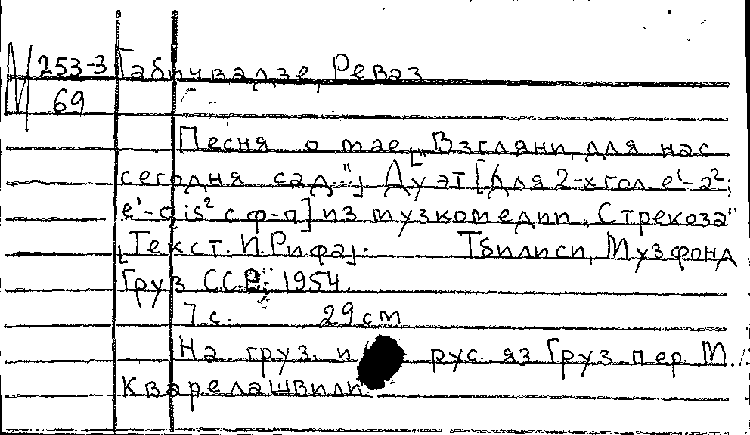 М 253-3 Габичвадзе, Реваз
69
Песня о мае „Взгляни, для нас
сегодня сад..."] Дуэт [Для 2-х гол. e¹-a²;
e¹-gis² с ф-п] из музкомедии „Стрекоза"
[Текст. И. Рифа]. Тбилиси, Музфонд
Груз ССР, 1954
7 с. 29 cm
На груз. и рус. яз Груз. пер. М.
Кварелашвили